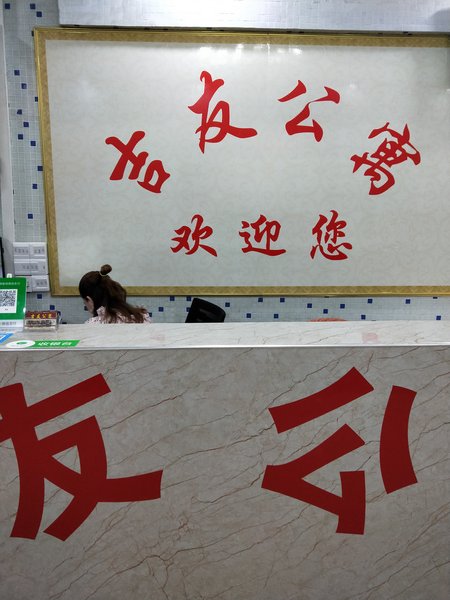 吉友公寓
欢迎您
收银台
友公